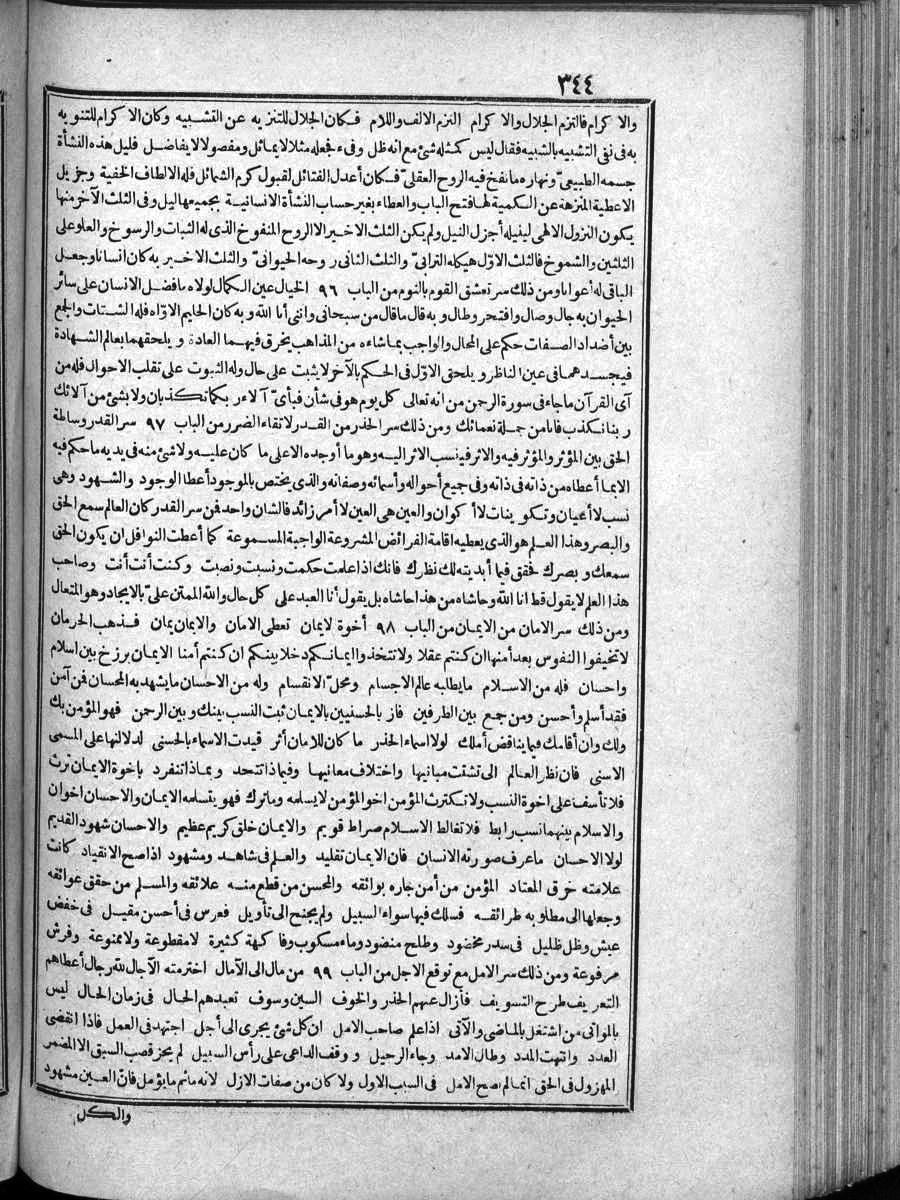 ٣٤٤
والاكرام فالتزم الجلال والاكرام التزم الالف واللام فكان الجلال للتنزيه عن التشبيه وكان الاكرام للتنويه
به فى نفى التشبيه بالشبيه فقال ليس كمثله شئ مع انه ظل وفىء فجعله مثلا لايماثل ومفضولا لايفاضل فليل هذه النشأة
جسمه الطبيعىّ ونهاره مانفخ فيه الروح العقلىّ فكان أعدل القتائل لقبول كرم الشمائل فله الالطاف الخفية وجزيل
الاعطية المنزهة عن الكمية لها فتح الباب والعطاء بغير حساب النشأة الانسانية بجميعها ليل وفى الثلث الآخر منها
يكون النزول الالهى لينيله أجزل النيل ولم يكن الثلث الاخير الا الروح المنفوخ الذى له الثبات والرسوخ والعلو على
الثلثين والشموخ فالثلث الاوّل هيكله الترابىّ والثلث الثانى روحه الحيوانىّ والثلث الاخير به كان انسانا وجعل
الباقى له أعوانا ومن ذلك سر تعشق القوم بالنوم من الباب ٩٦ الخيال عين الكمال لولاه مافضل الانسان على سائر
الحيوان به جال وصال وافتخر وطال وبه قال ماقال من سبحانى واننى أنا الله وبه كان الحليم الاوّاه فله الشتات والجمع
بين أضداد الصفات حكم على المحال والواجب بماشاءه من المذاهب يخرق فيهما العادة ويلحقهما بعالم الشهادة
فيجسدهما فى عين الناظر ويلحق الاوّل فى الحكم بالآخر لايثبت على حال وله الثبوت على تقلب الاحوال فله من
آى القرآن ماجاء فى سورة الرحمن من انه تعالى كل يوم هو فى شأن فبأىّ آلاء ربكما تكذبان ولا بشئ من آلائك
ربنا نكذب فانا من جملة نعمائك ومن ذلك سر الحذر من القدر لاتقاء الضرر من الباب ٩٧ سر القدر وساطة
الحق بين المؤثر والمؤثر فيه والاثر فينسب الاثر اليه وهو ما أوجده الاعلى ما كان عليه ولا شئ منه فى يديه ماحكم فيه
الابما أعطاه من ذاته فى ذاته وفى جميع أحواله وأسمائه وصفاته والذى يختص بالموجود أعطا الوجود والشهود وهى
نسب لا أعيان وتكوينات لا أكوان والعين هى العين لا أمر زائد فالشان واحد فمن سر القدر كان العالم سمع الحق
والبصر وهذا العلم هو الذى يعطيه اقامة الفرائض المشروعة الواجبة المسموعة كما أعطت النوافل ان يكون الحق
سمعك وبصرك فحقق فيما أبديته لك نظرك فانك اذا علمت حكمت ونسبت ونصبت وكنت أنت أنت وصاحب
هذا العلم لايقول قط انا الله وحاشاه من هذا حاشاه بل يقول أنا العبد على كل حال والله الممتن علىّ بالايجاد وهو المتعال
ومن ذلك سر الامان من الايمان من الباب ٩٨ أخوة الايمان تعطى الامان والايمان يمان فذهب الحرمان
لاتخيفوا النفوس بعد أمنها ان كنتم عقلا ولا تتخذوا ايمانكم دخلا بينكم ان كنتم أمنا الايمان برزخ بين اسلام
واحسان فله من الاسلام مايطلبه عالم الاجسام ومحل الانقسام وله من الاحسان مايشهد به المحسان فمن آمن
فقد أسلم وأحسن ومن جمع بين الطرفين فاز بالحسنيين بالايمان ثبت النسب بينك وبين الرحمن فهو المؤمن بك
ولك وان أقامك فيما يناقض أملك لولا اسماء الحذر ما كان للامان أثر قيدت الاسماء بالحسنى لدلالتها على المسمى
الاسنى فان نظر العالم الى تشتت مبانيها واختلاف معانيها وفيماذا تتحد وبماذا تنفرد باخوة الايمان ترث
فلا تأسف على اخوة النسب ولا تكترث المؤمن اخو المؤمن لايسلمه وماترك فهو يتسلمه الايمان والاحسان اخوان
والاسلام بينهما نسب رابط فلا تغالط الاسلام صراط قويم والايمان خلق كريم عظيم والاحسان شهود القديم
لولا الاحسان ماعرف صورته الانسان فان الايمان تقليد والعلم فى شاهد ومشهود اذا صح الانقياد كانت
علامته خرق المعتاد المؤمن من أمن جاره بوائقه والمحسن من قطع منه علائقه والمسلم من حقق عوائقه
وجعلها الى مطلوبه طرائقه فسلك فيها سواء السبيل ولم يجنح الى تأويل فعرس فى أحسن مقيل فى خفض
عيش وظل ظليل فى سدر مخضود وطلح منضود وماء مسكوب وفاكهة كثيرة لامقطوعة ولا ممنوعة وفرش
مرفوعة ومن ذلك سر الامل مع توقع الاجل من الباب ٩٩ من مال الى الآمال اخترمته الآجال لله رجال أعطاهم
التعريف طرح التسويف فأزال عنهم الحذر والخوف السين وسوف تعبدهم الحال فى زمان الحال ليس
بالمواتى من اشتغل بالماضى والآتى اذا علم صاحب الامل ان كل شئ يجرى الى أجل اجتهد فى العمل فاذا انقضى
العدد وانتهت المدد وطال الامد وجاء الرحيل ووقف الداعى على رأس السبيل لم يحز قصب السبق الا المضمر
المهزول فى الحق انما لم يصح الامل فى السبب الاول ولا كان من صفات الازل لانه ماثم مايؤمل فان العين مشهود
والكل